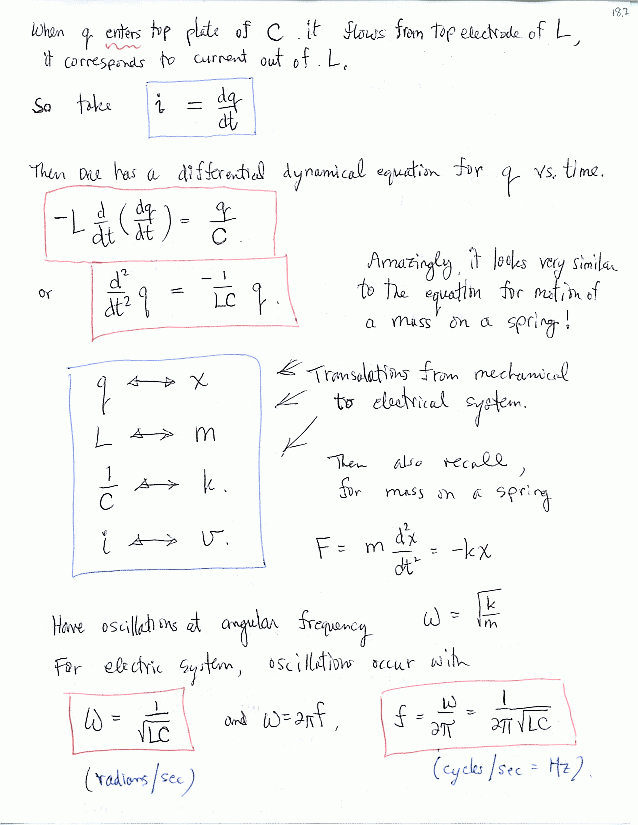 18.2
When q enters top plate of C . it flows from top electrode of L,
it corresponds to current out of L.
So take i = dq/dt
Then one has a differential dynamical equation for q vs. time.
-L d/dt (dq/dt) = q/C .
or d²/dt² q = -1/LC q .
Amazingly, it looks very similar
to the equation for motion of
a mass on a spring!
q ↔ x
L ↔ m
1/C ↔ k.
i ↔ v.
⇐ Translations from mechanical
to electrical system.
Then also recall,
for mass on a spring
F = m d²x/dt² = -kx
Have oscillations at angular frequency ω = √k/m
For electric system, oscillations occur with
ω = 1/√LC and ω=2πf, f = ω/2π = 1/2π√LC
(radians/sec) (cycles/sec = Hz).